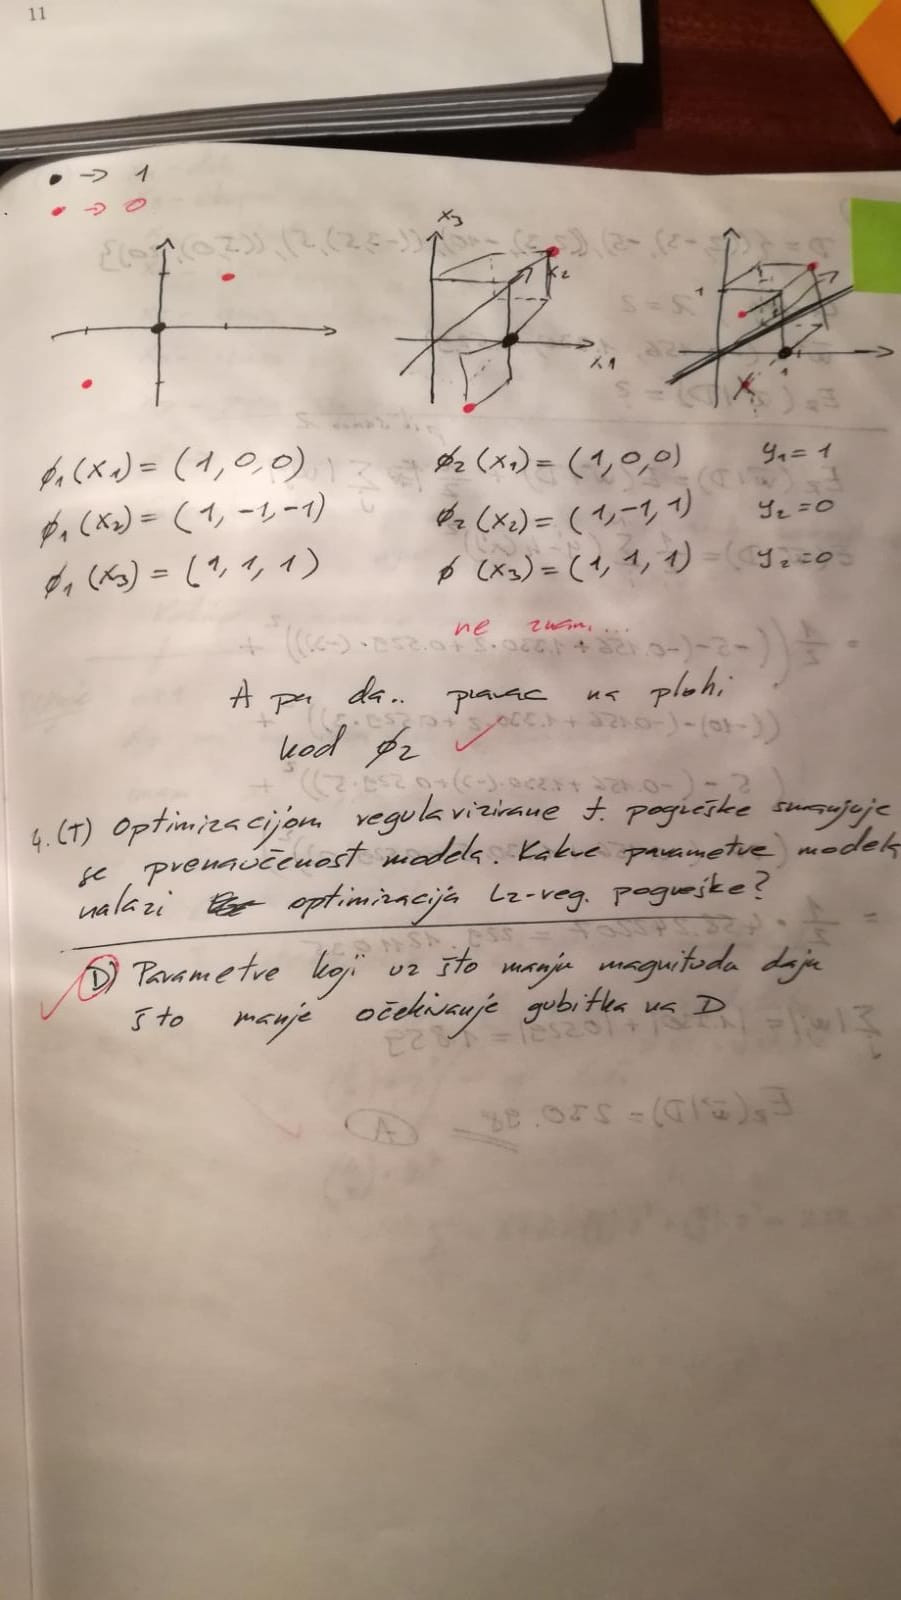 11
• → 1
• → 0
x3
x2
x1
1
1
X
φ1(x1) = (1, 0, 0) φ2(x1) = (1, 0, 0) y1 = 1
φ1(x2) = (1, -1, -1) φ2(x2) = (1, -1, 1) y2 = 0
φ1(x3) = (1, 1, 1) φ(x3) = (1, 1, 1) y2 = 0
ne znam...
A pa da.. pravac na plohi
kod φ2 ✓
4. (T) Optimizacijom regularizirane f. pogreške smanjuje
se prenaučenost modela. Kakve parametre modela
nalazi optimizacija L2-reg. pogreške?
D) Parametre koji uz što manju magnitudu daju
što manje očekivanje gubitka na D